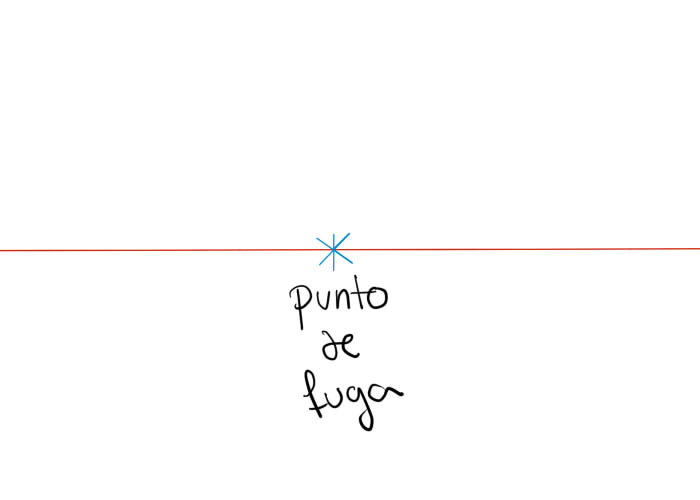 punto
de
fuga